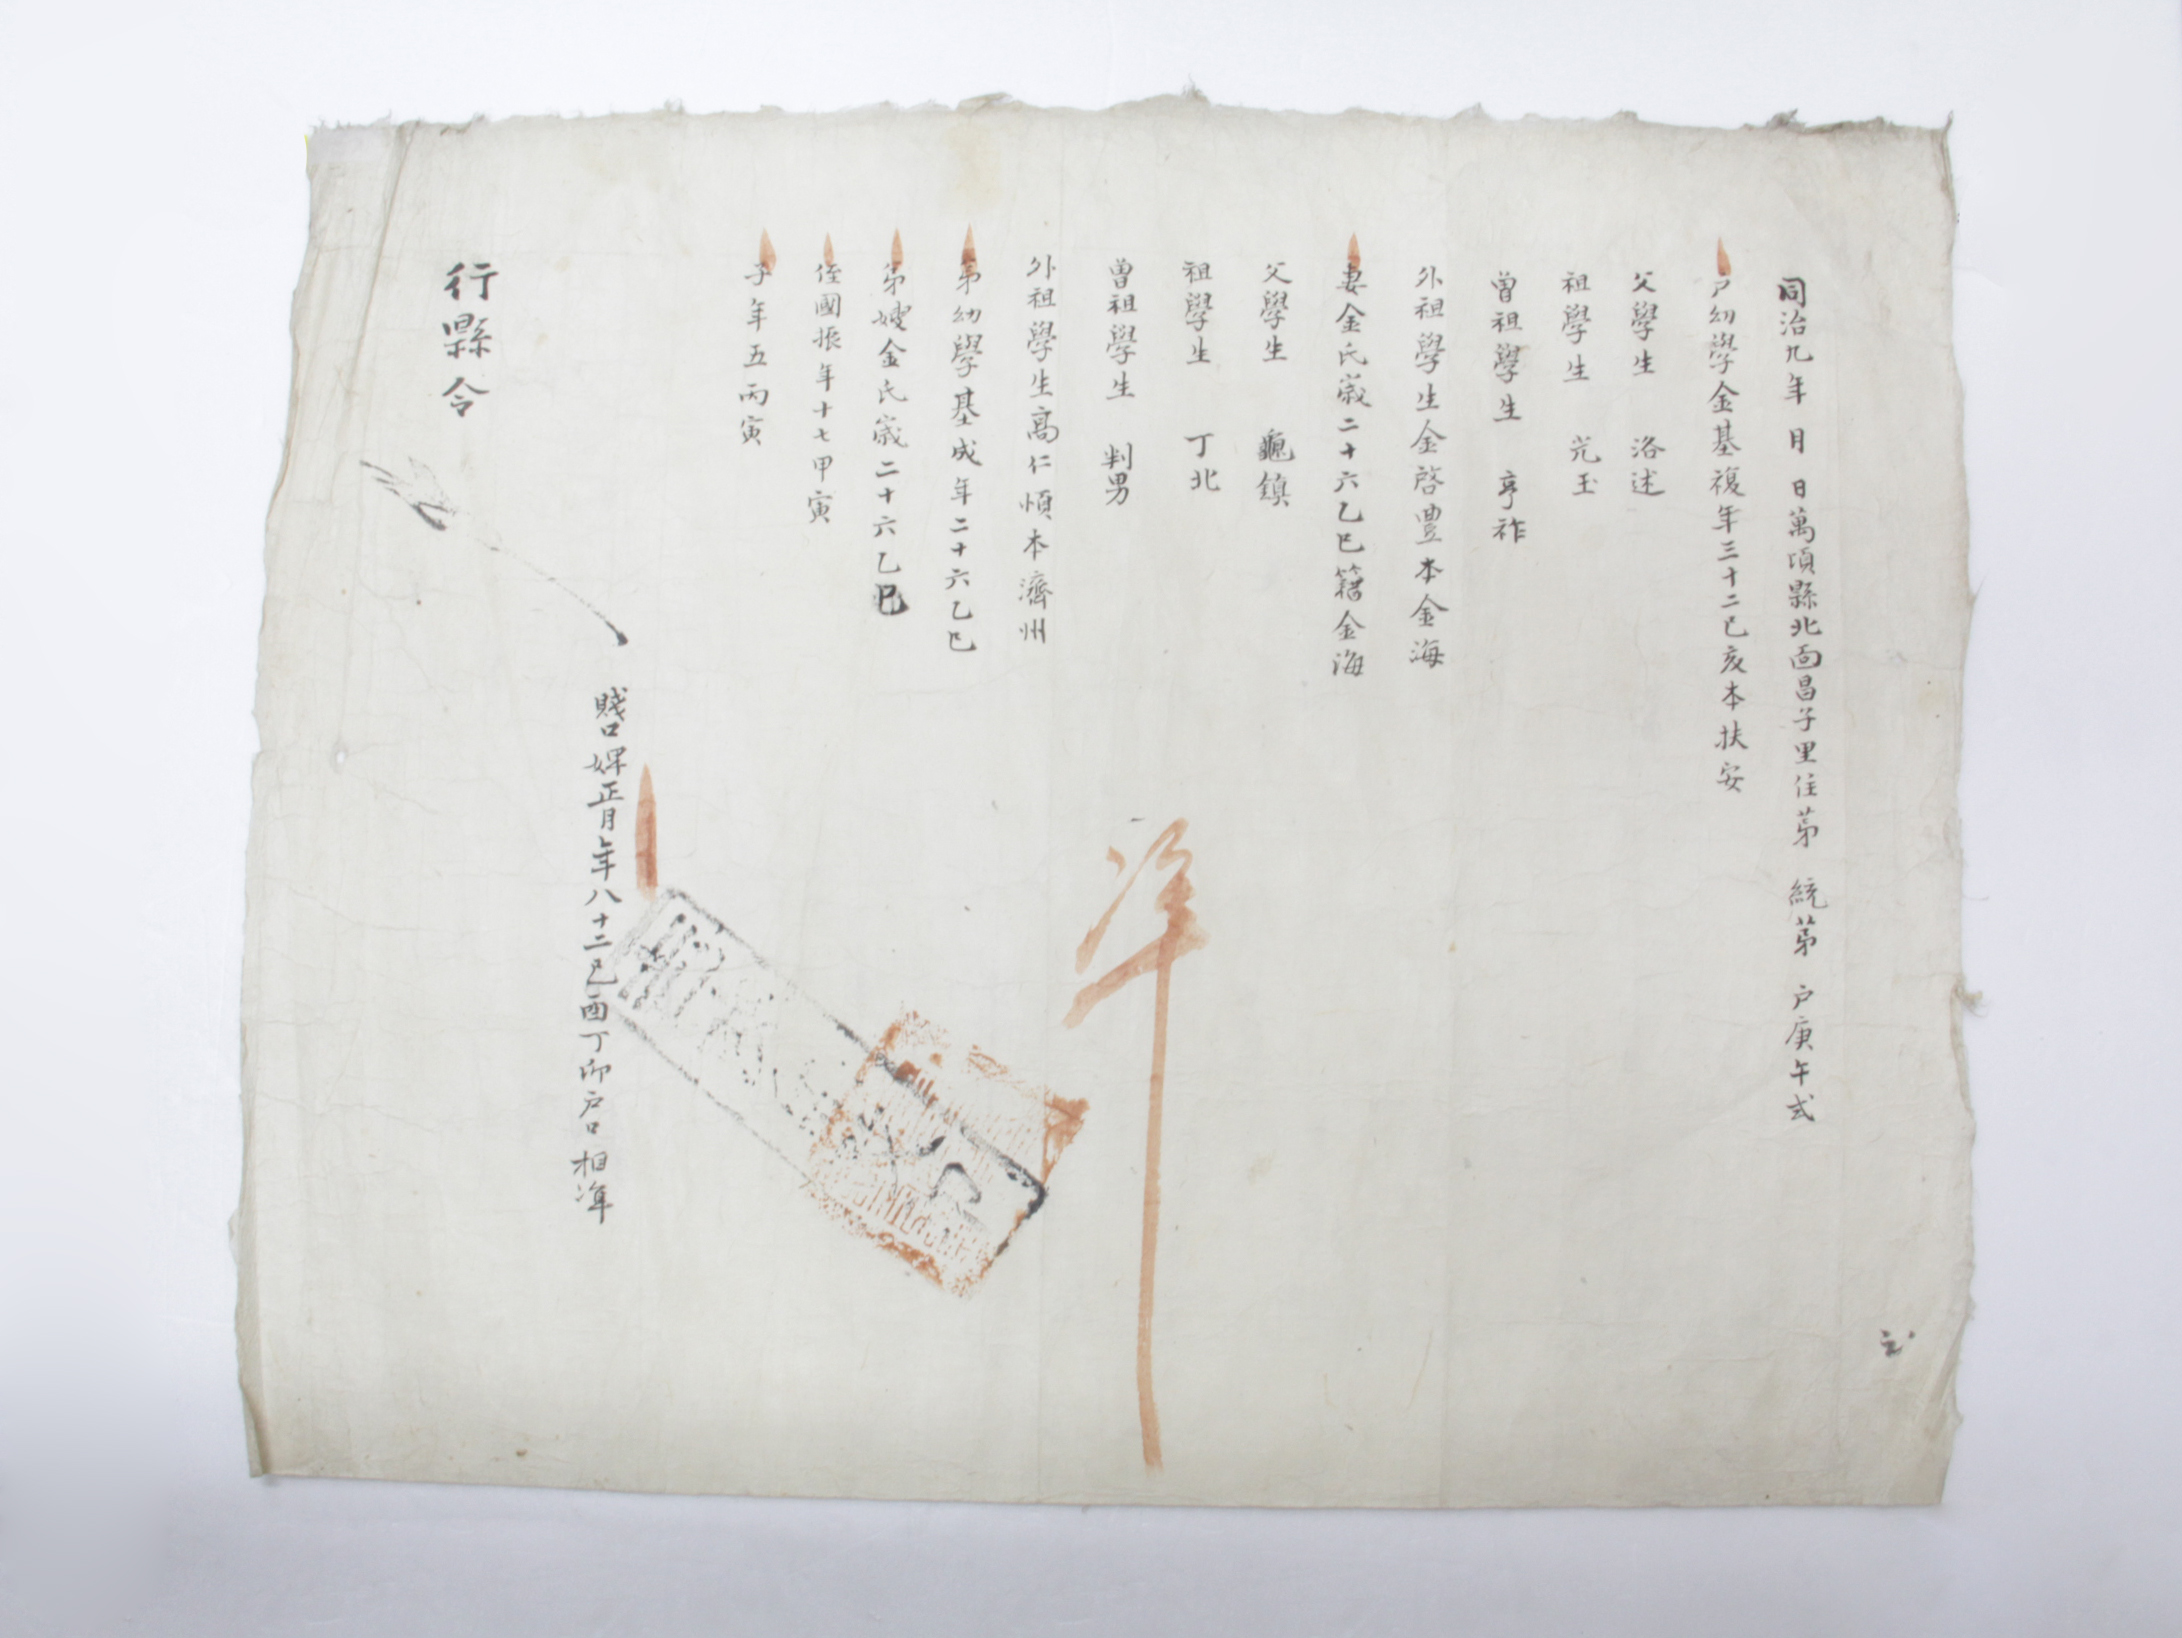 同治九年 月 日萬頃縣北面昌子里住苐 統苐 户庚午式
户幼學金基複年三十二己亥本扶安
父學生 洛述
祖學生 光玉
曾祖學生 亨祚
外祖學生金啓豊本金海
妻金氏歲二十六乙巳籍金海
父學生 龜鎮
祖學生 丁北
曾祖學生 判男
外祖學生高仁慎本濟州
弟幼學基成年二十六乙巳
弟嫂金氏歲二十六乙巳
侄國振年十七甲寅
子年五丙寅
賤口婢正月年八十二己酉丁卯户口相凖
行縣令
凖